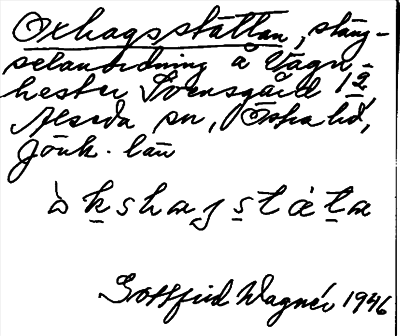 Oxhagsstättan, stäng-
selanordning å Vagn-
hester Svensgård 1 2,
Alseda sn, Östra hd,
Jönk. län
ò k s h a g s t ä t a
Gottfrid Wagnér 1946